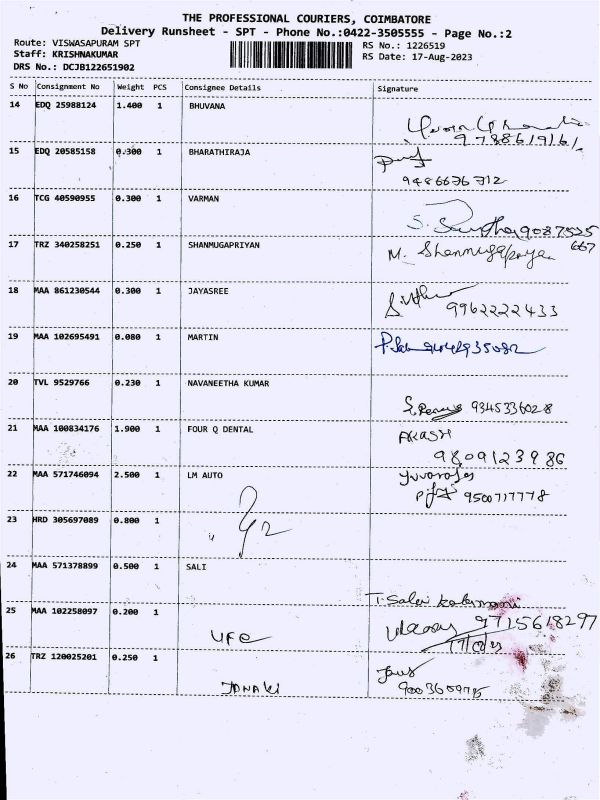 THE PROFESSIONAL COURIERS, COIMBATORE
Delivery Runsheet - SPT - Phone No.:0422-3505555 - Page No.:2
Route: VISWASAPURAM SPT
RS No.: 1226519
Staff: KRISHNAKUMAR
RS Date: 17-Aug-2023
DRS No.: DCJB122651902
S No Consignment No Weight PCS Consignee Details Signature
14 EDQ 25988124 1.400 1 BHUVANA
9788619161
15 EDQ 20585158 0.300 1 BHARATHIRAJA
9486636312
16 TCG 40590955 0.300 1 VARMAN
S. 9087525
667
17 TRZ 340258251 0.250 1 SHANMUGAPRIYAN M. Shanmugapriyan
18 MAA 861230544 0.300 1 JAYASREE
9962222433
19 MAA 102695491 0.080 1 MARTIN
20 TVL 9529766 0.230 1 NAVANEETHA KUMAR
9345336028
21 MAA 100834176 1.900 1 FOUR Q DENTAL AKASH
9809123986
22 MAA 571746094 2.500 1 LM AUTO
9500717778
23 HRD 305697089 0.800 1
24 MAA 571378899 0.500 1 SALI
25 MAA 102258097 0.200 1 9715618297
UFC
26 TRZ 120025201 0.250 1
JANAKI